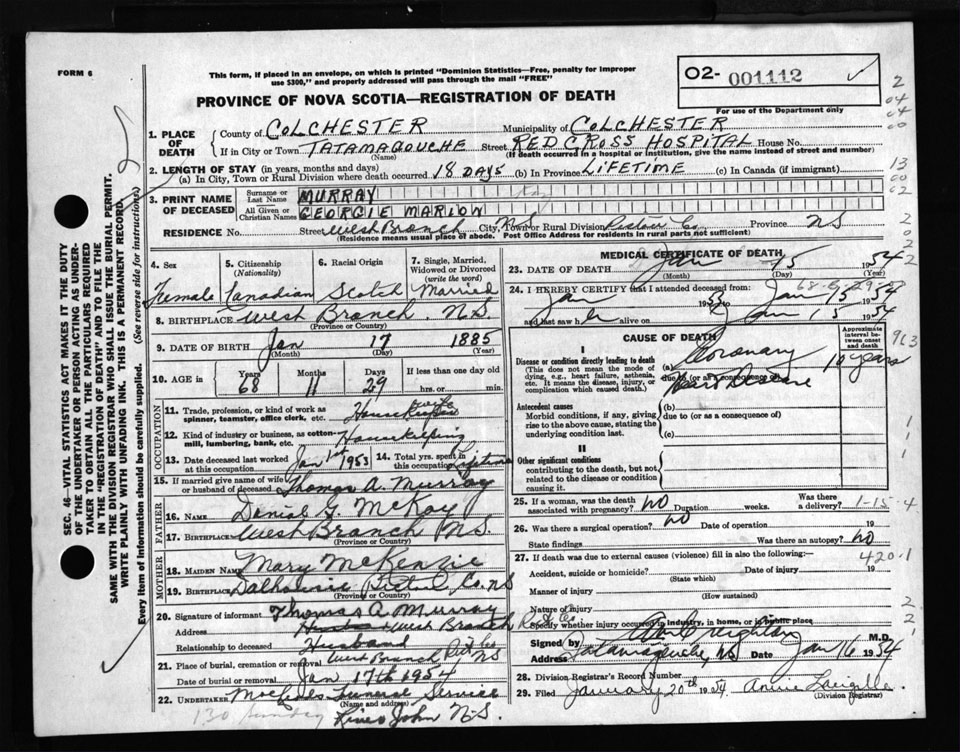 FORM 6
This form, if placed in an envelope, on which is printed "Dominion Statistics—Free, penalty for improper
use $300," and properly addressed will pass through the mail "FREE"
O2- 001112 ✓
For use of the Department only
PROVINCE OF NOVA SCOTIA—REGISTRATION OF DEATH
1. PLACE OF DEATH
County of COLCHESTER Municipality of COLCHESTER
If in City or Town TATAMAGOUCHE Street RED CROSS HOSPITAL House No.
(Name) (If death occurred in a hospital or institution, give the name instead of street and number)
2. LENGTH OF STAY (in years, months and days)
(a) In City, Town or Rural Division where death occurred 18 DAYS (b) In Province LIFETIME (c) In Canada (if immigrant)
3. PRINT NAME OF DECEASED
Surname or Last Name MURRAY
All Given or Christian Names GEORGIE MARION
RESIDENCE No. Street West Branch NS City, Town or Rural Division Pictou Co. Province NS
(Residence means usual place of abode. Post Office Address for residents in rural parts not sufficient)
4. Sex 5. Citizenship (Nationality) 6. Racial Origin 7. Single, Married, Widowed or Divorced (write the word)
Female Canadian Scotch Married
8. BIRTHPLACE West Branch. N.S.
(Province or Country)
9. DATE OF BIRTH Jan 17 1885
(Month) (Day) (Year)
10. AGE in Years 68 Months 11 Days 29 If less than one day old hrs. or min.
OCCUPATION
11. Trade, profession, or kind of work as spinner, teamster, office clerk, etc. Housewife
12. Kind of industry or business, as cotton-mill, lumbering, bank, etc. Housekeeping
13. Date deceased last worked at this occupation Jan 1st 1953 14. Total yrs. spent in this occupation Lifetime
15. If married give name of wife or husband of deceased Thomas A. Murray
FATHER
16. NAME Donial G. McKay
17. BIRTHPLACE West Branch N.S.
(Province or Country)
MOTHER
18. MAIDEN NAME Mary McKenzie
19. BIRTHPLACE Dalhousie Pictou Co. NS
(Province or Country)
20. Signature of informant Thomas A. Murray
Address West Branch R
Relationship to deceased Husband
21. Place of burial, cremation or removal West Branch Pict Co NS
Date of burial or removal Jan 17th 1954
22. UNDERTAKER Funeral Service
(Name and address)
130 Sunday River John N.S.
MEDICAL CERTIFICATE OF DEATH
23. DATE OF DEATH Jan 15 1954
(Month) (Day) (Year)
24. I HEREBY CERTIFY that I attended deceased from:
Jan 19 to Jan 15 1954
and last saw h er alive on Jan 15 1954
CAUSE OF DEATH
Approximate interval between onset and death
I
Disease or condition directly leading to death
(This does not mean the mode of dying, e.g., heart failure, asthenia, etc. It means the disease, injury, or complication which caused death.)
(a) Coronary 10 years
due to (or as a consequence of)
Heart Disease
Antecedent causes
Morbid conditions, if any, giving rise to the above cause, stating the underlying condition last.
(b)
due to (or as a consequence of)
(c)
II
Other significant conditions
contributing to the death, but not related to the disease or condition causing it.
25. If a woman, was the death associated with pregnancy? NO Duration weeks. Was there a delivery? 1-15-4
26. Was there a surgical operation? NO Date of operation 19
State findings Was there an autopsy? NO
27. If death was due to external causes (violence) fill in also the following:— 420.1
Accident, suicide or homicide? Date of injury 19
(State which)
Manner of injury
(How sustained)
Nature of injury
Specify whether injury occurred in industry, in home, or in public place
Signed by Creighton M.D.
Address Tatamagouche, NS Date Jan 16 1954
28. Division Registrar's Record Number
29. Filed January 20th 1954 Annie Langille
(Division Registrar)
SEC. 46—VITAL STATISTICS ACT MAKES IT THE DUTY
OF THE UNDERTAKER OR PERSON ACTING AS UNDER-
TAKER TO OBTAIN ALL THE PARTICULARS REQUIRED
IN THE "REGISTRATION OF DEATH" AND TO FILE THE
SAME WITH THE DIVISION REGISTRAR WHO SHALL ISSUE THE BURIAL PERMIT.
WRITE PLAINLY WITH UNFADING INK. THIS IS A PERMANENT RECORD.
Every item of information should be carefully supplied. (See reverse side for instructions.)